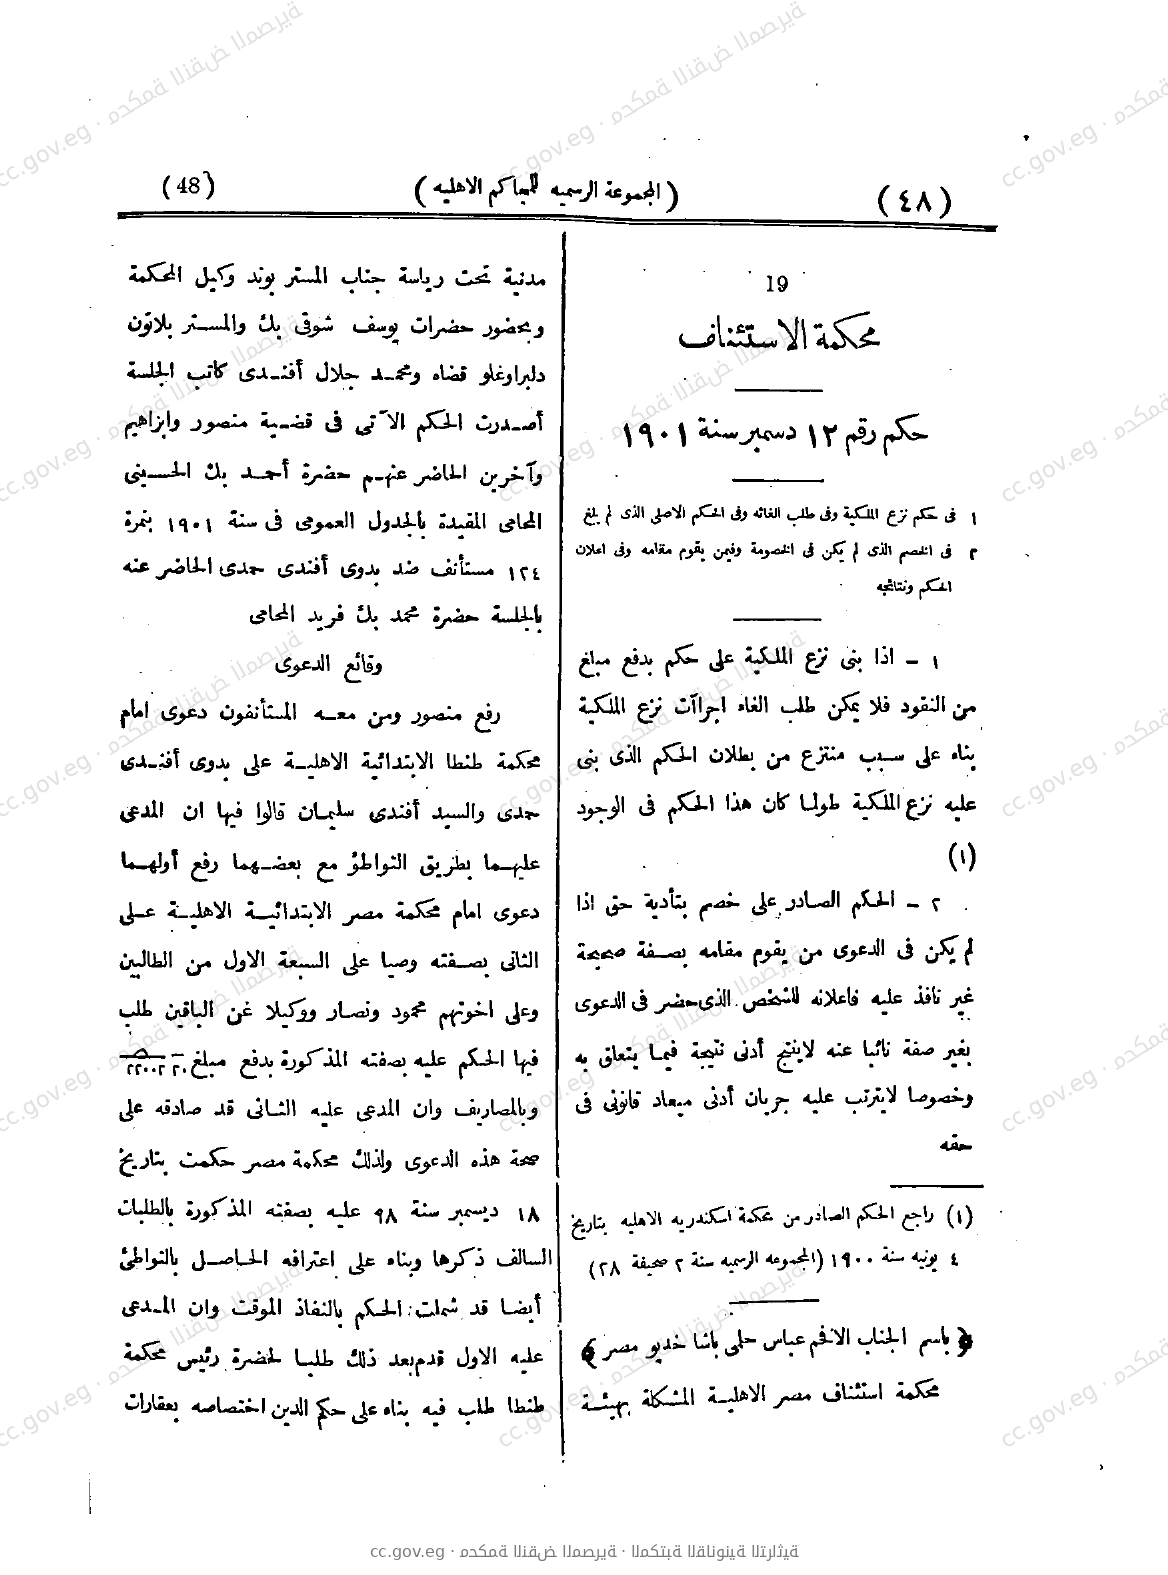 (٤٨)
(المجموعة الرسميه للمحاكم الاهليه)
(48)
19
محكمة الاستئناف
حكم رقم ١٢ دسمبر سنة ١٩٠١
١ فى حكم نزع الملكية وفى طلب الغائه وفى الحكم الاصلى الذى لم يلغ
٢ فى الخصم الذى لم يكن فى الخصومة وفيمن يقوم مقامه وفى اعلان
الحكم ونتائجه
١ – اذا بنى نزع الملكية على حكم بدفع مبلغ
من النقود فلا يمكن طلب الغاء اجراآت نزع الملكية
بناء على سبب منتزع من بطلان الحكم الذى بنى
عليه نزع الملكية طولما كان هذا الحكم فى الوجود
(١)
٢ – الحكم الصادر على خصم بتأدية حتى اذا
لم يكن فى الدعوى من يقوم مقامه بصفة صحيحة
غير نافذ عليه فاعلانه للشخص الذى حضر فى الدعوى
بغير صفة نائبا عنه لاينتج أدنى نتيجة فيما يتعلق به
وخصوصا لايترتب عليه جريان أدنى ميعاد قانونى فى
حقه
(١) راجع الحكم الصادر من محكمة اسكندريه الاهليه بتاريخ
٤ يونيه سنة ١٩٠٠ (المجموعه الرسميه سنة ٢ صحيفة ٢٨)
﴿ باسم الجناب الافخم عباس حلمى باشا خديو مصر ﴾
محكمة استئناف مصر الاهلية المشكلة بهيئة
مدنية تحت رياسة جناب المستر بوند وكيل المحكمة
وبحضور حضرات يوسف شوقى بك والمستر بلاتون
دلبراوغلو قضاه ومحمد جلال أفندى كاتب الجلسة
أصدرت الحكم الآتى فى قضية منصور وابراهيم
وآخرين الحاضر عنهم حضرة أحمد بك الحسينى
المحامى المقيدة بالجدول العمومى فى سنة ١٩٠١ بنمرة
١٢٤ مستأنف ضد بدوى أفندى حمدى الحاضر عنه
بالجلسة حضرة محمد بك فريد المحامى
وقائع الدعوى
رفع منصور ومن معه المستأنفون دعوى امام
محكمة طنطا الابتدائية الاهلية على بدوى أفندى
حمدى والسيد أفندى سليمان قالوا فيها ان المدعى
عليهما بطريق التواطؤ مع بعضهما رفع أولهما
دعوى امام محكمة مصر الابتدائية الاهلية على
الثانى بصفته وصيا على السبعة الاول من الطالبين
وعلى اخوتهم محمود ونصار ووكيلا عن الباقين طلب
فيها الحكم عليه بصفته المذكورة بدفع مبلغ
وبالمصاريف وان المدعى عليه الثانى قد صادقه على
صحة هذه الدعوى ولذلك محكمة مصر حكمت بتاريخ
١٨ ديسمبر سنة ٩٨ عليه بصفته المذكورة بالطلبات
السالف ذكرها وبناء على اعترافه الحاصل بالتواطئ
أيضا قد شملت الحكم بالنفاذ الموقت وان المدعى
عليه الاول قدم بعد ذلك طلبا لحضرة رئيس محكمة
طنطا طلب فيه بناء على حكم الدين اختصاصه بعقارات
cc.gov.eg · محكمة النقض المصرية · المكتبة القانونية التراثية